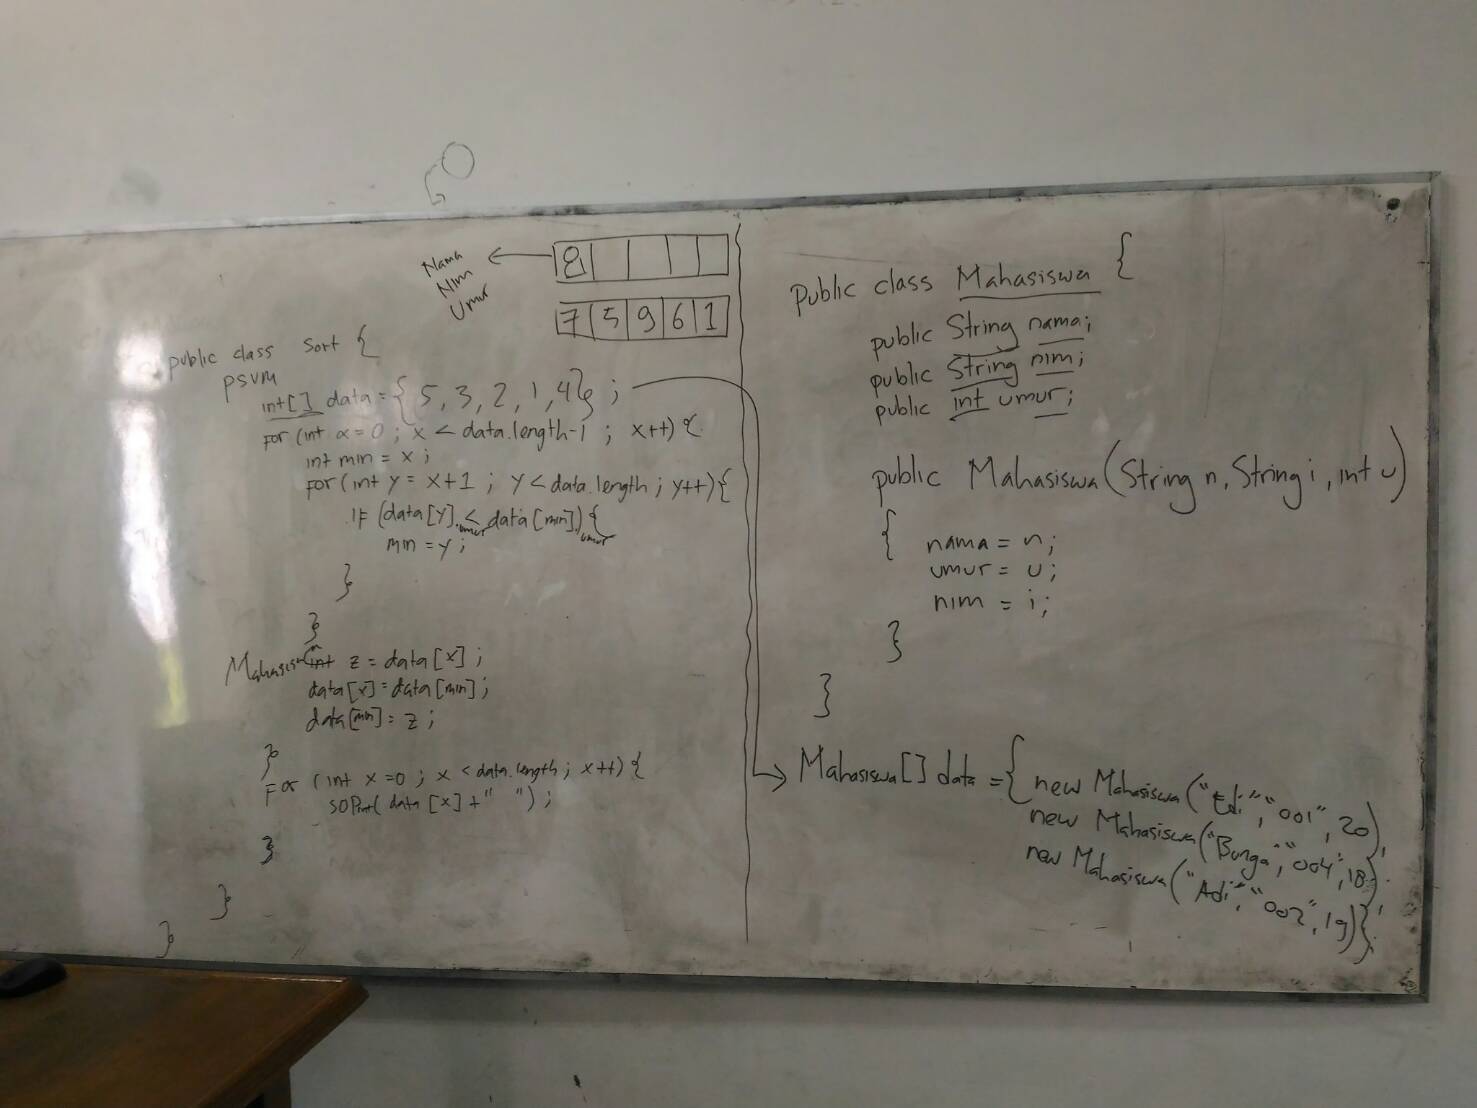 Nama
Nim
Umur
8
7 5 9 6 1
public class Sort {
psvm
int[] data = { 5, 3, 2, 1, 4} ;
For (int x = 0 ; x < data.length-1 ; x++) {
int min = x ;
For (int y = x+1 ; y < data.length ; y++) {
IF (data[y].umur < data[min].umur) {
min = y ;
}
}
Mahasiswa int z = data[x] ;
data[x] = data[min] ;
data[min] = z ;
}
For (int x = 0 ; x < data.length ; x++) {
SOPrint( data[x] + " " ) ;
}
}
}
public class Mahasiswa {
public String nama;
public String nim;
public int umur;
public Mahasiswa (String n, String i, int u)
{
nama = n;
umur = u;
nim = i;
}
}
Mahasiswa[] data = { new Mahasiswa ("Edi", "001", 20),
new Mahasiswa ("Bunga", "004", 18),
new Mahasiswa ("Adi", "002", 19)};